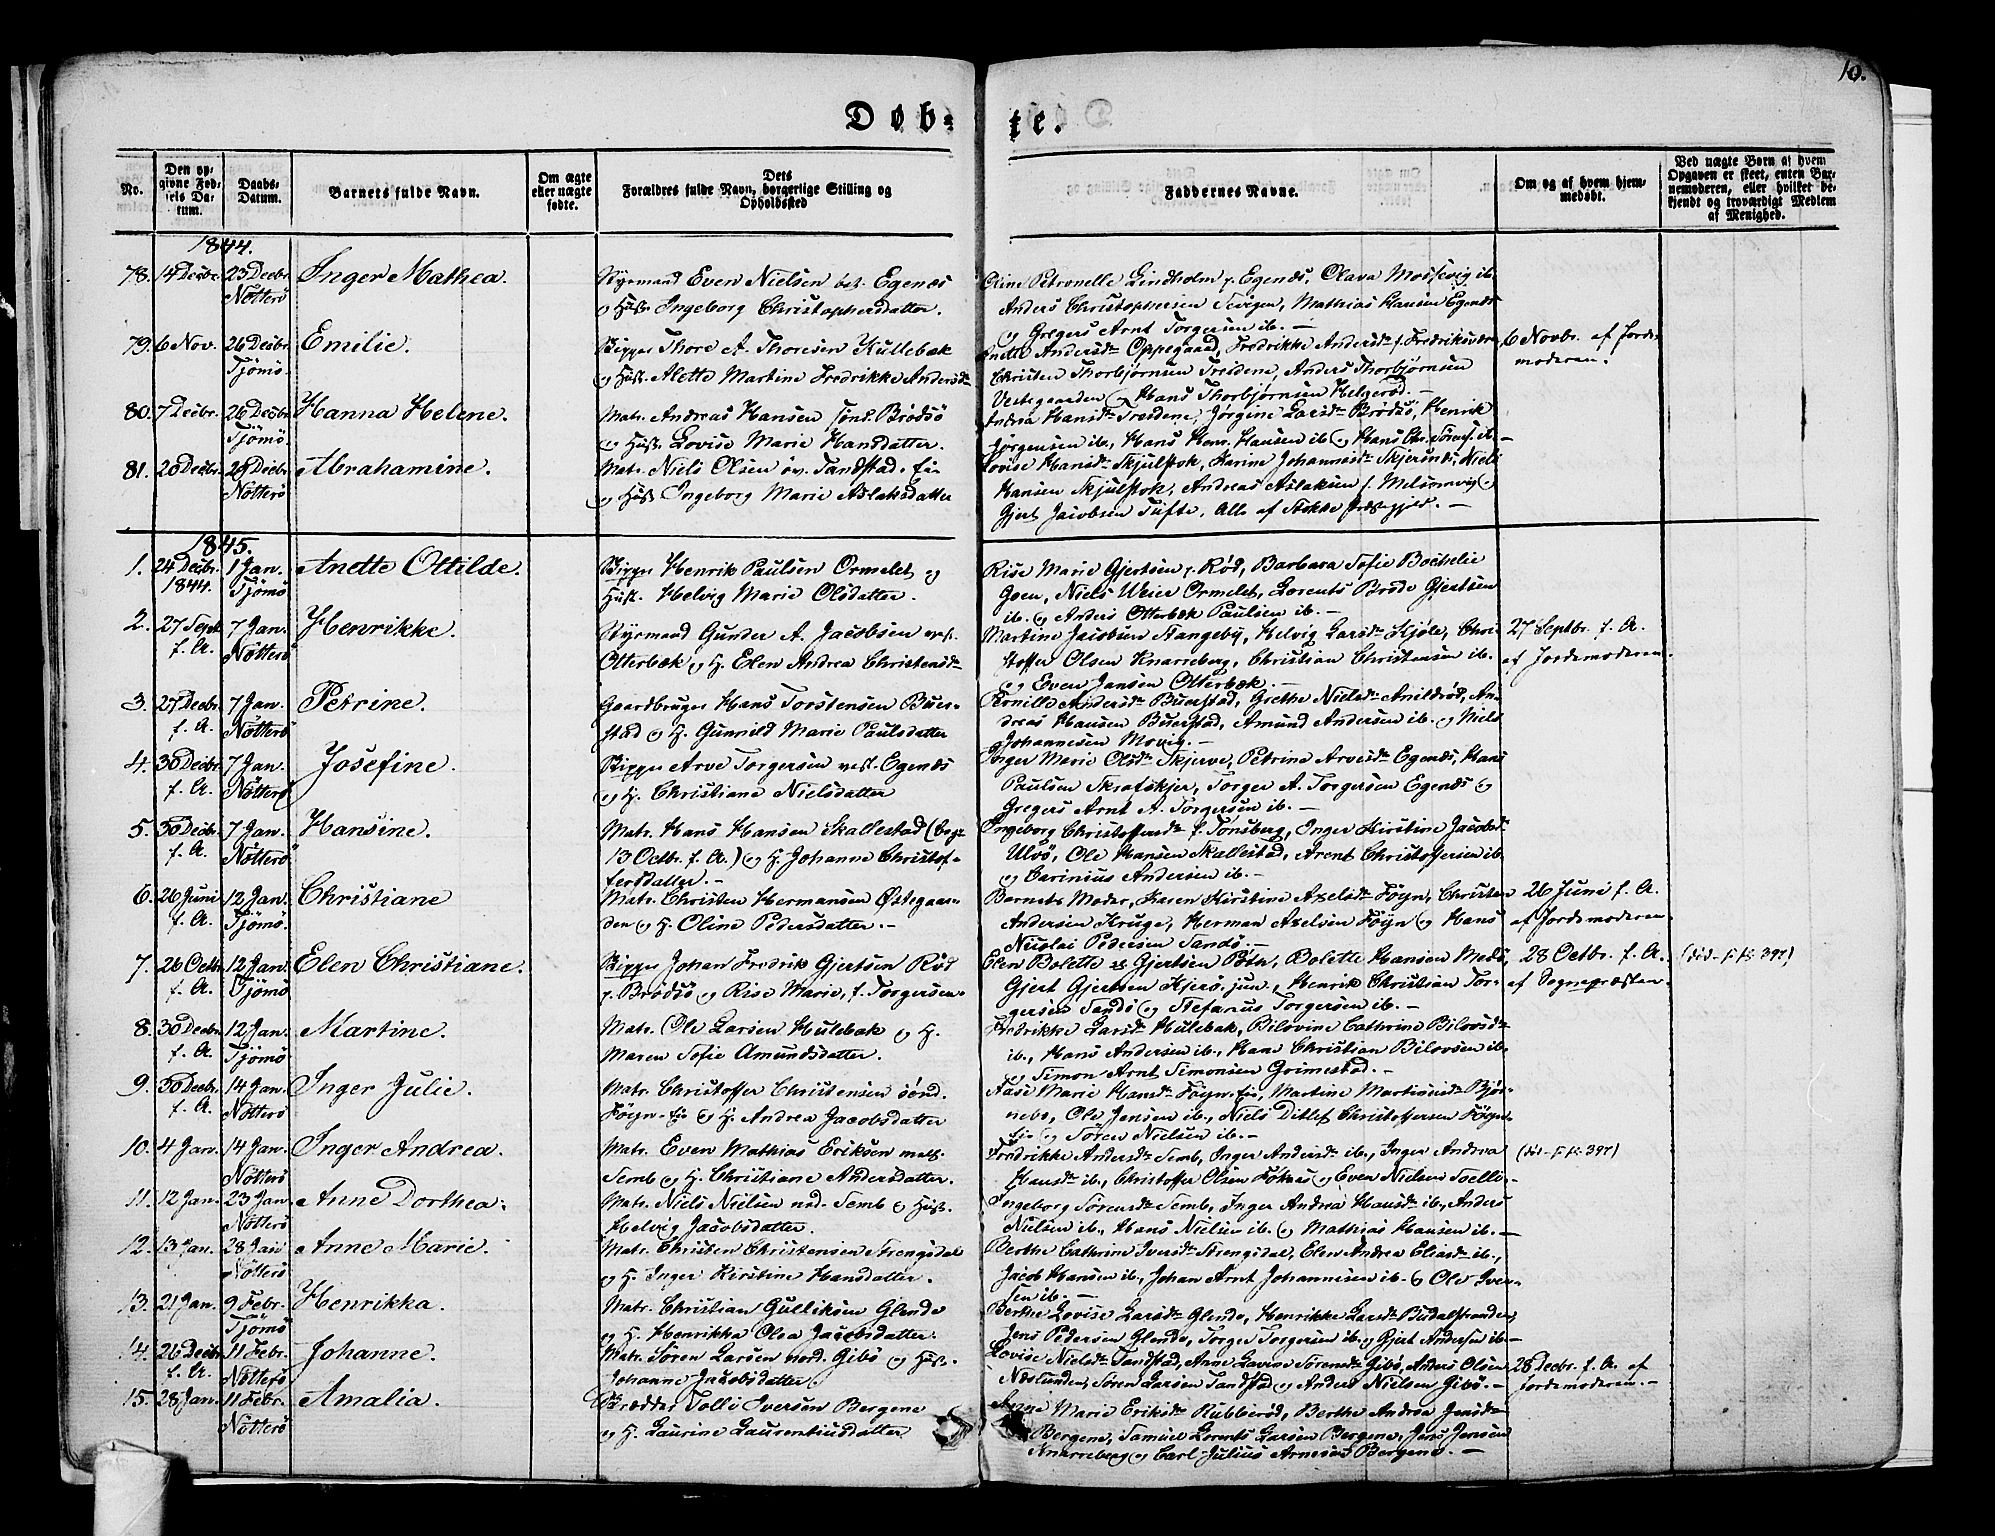 10.
Døb-te.
No.
Den op-
givne Fød-
sels Da-
tum.
Daabs-
Datum.
Barnets fulde Navn.
Om ægte
eller uægte
fødte.
Dets
Forældres fulde Navn, borgerlige Stilling og
Opholdssted
Faddernes Navne.
Om og af hvem hjem-
medøbt.
Ved uægte Børn af hvem
Opgaven er skeet, enten Bar-
nemoderen, eller hvilket be-
kjendt og troværdigt Medlem
af Menighed.
1844.
78. 14 Decbr. 23 Decbr. Nötterö Inger Mathea.
Styrmand Even Nielsen Egenæs
og Hust. Ingeborg Christophersdatter.
Oline Petronelle Lindholm f. Egenæs, Olava Mossevig ib.
Anders Christophersen Tevigen, Mathias Hansen Egenæs
og Gregers Arnt Torgersen ib. —
79. 6 Nov. 26 Decbr. Tjömö. Emilie.
Skipper Thore A. Thoresen Kullebæk
og Hust. Alette Martine Fredrikke Andersdr
Anette Andersdr Oppegaad, Fredrikke Andersdr f. Fredriksværn
Christen Thorbjørnsen Treidene, Anders Thorbjørnsen
Vestegaarden og Hans Thorbjørnsen Helgerød.
6 Novbr. af Jorde-
moderen.
80. 7 Decbr. 26 Decbr. Tjömö. Hanna Helene.
Matr. Andreas Hansen sönd. Brödsö
og Hust. Lovise Marie Hansdatter.
Andrea Hansdr Treidene, Jörgine Larsdr Brödsö, Henrik
Jörgensen ib., Hans Henr. Hansen ib. og Hans Chr. Sörens. ib. —
81. 20 Decbr. 29 Decbr. Nötterö Abrahamine.
Matr. Niels Olsen öv. Tandstad. Eie
og Hust Ingeborg Marie Aslaksdatter
Lovise Hansdr Skjulstok, Karine Johannesdr Skjersnes, Niels
Hansen Skjulstok, Andreas Aslaksen f. Melsomvig og
Gjert Jacobsen Tufte, Alle af Stokke Præstegjeld. —
1845.
1. 24 Decbr. 1844. 1 Jan. Tjömö Anette Ottilde.
Skipper Henrik Paulsen Ormelet og
Hust. Helvig Marie Olsdatter.
Rise Marie Gjertsen f. Röd, Barbara Sofie Bochelie
Goen, Niels Weier Ormelet, Lorents Bröde Gjertsen
ib. og Anders Otterbæk Paulsen ib. —
2. 27 Sept. f. A. 7 Jan. Nötterö Henrikke.
Styrmand Gunder A. Jacobsen vest.
Otterbæk og H. Elen Andrea Christensdr
Martine Jacobsen Stangeby, Helvig Larsdr Kjöle, Chri-
stoffer Olsen Knarreberg, Christian Christensen ib.
og Even Jansen Otterbæk. —
27 Septbr. f. A.
af Jordemoderen.
3. 27 Decbr. f. A. 7 Jan. Nötterö Petrine.
Gaardbruger Hans Torstensen Buer-
stad og H. Gunnild Marie Paulsdatter
Pernille Andersdr Buerstad, Grethe Nielsdr Anildröd, An-
dreas Hansen Buerstad, Amund Andersen ib. og Niels
Johannesen Movig. —
4. 30 Decbr. f. A. 7 Jan. Nötterö Josefine.
Skipper Arve Torgersen vest. Egenæs
og H. Christiane Nielsdatter
Inger Marie Olsdr Skjerve, Petrine Arvesdr Egenæs, Hans
Paulsen Skrafskjer, Torger A. Torgersen Egenæs og
Gregers Arnt A. Torgersen ib. —
5. 30 Decbr. f. A. 7 Jan. Nötterö Hansine.
Matr. Hans Hansen Skallestad (
13 Octbr. f. A.) og H. Johanne Christof-
fersdatter. —
Ingeborg Christoffersdr f. Tönsberg, Inger Kirstine Jacobsdr
Ulvö, Ole Hansen Skallestad, Arent Christoffersen ib.
og Carinius Andersen ib. —
6. 26 Juni f. A. 12 Jan. Tjömö. Christiane
Matr. Christen Hermansen Östegaar-
den og H. Oline Pedersdatter. —
Barnets Moder, Karen Kirstine Axelsdr Föyn, Christen
Andersen Kruge, Herman Axelsen Föyn og Hans
Nicolai Pedersen Sandö. —
26 Juni f. A.
af Jordemoderen.
7. 26 Octbr. f. A. 12 Jan. Tjömö Elen Christiane.
Skipper Johan Fredrik Gjertsen Röd
f. Brödsö og Rise Marie, f. Torgersen.
Elen Bolette Gjertsen Pöth, Bolette Hansen Medö,
Gjert Gjertsen Kjerö jun., Henrik Christian Tor-
gersen Sandö og Stefanus Torgersen ib. —
28 Octbr. f. A.
af Sognepræsten.
(död - F. No 397)
8. 30 Decbr. f. A. 12 Jan. Tjömö Martine.
Matr. Ole Larsen Hulebak og H.
Maren Sofie Amundsdatter.
Fredrikke Larsdr Hulebak, Bilovine Cathrine Bilovsdr
ib., Hans Andersen ib., Hans Christian Bilovsen ib.
og Simon Arnt Simonsen Grimestad. —
9. 30 Decbr. f. A. 14 Jan. Nötterö Inger Julie.
Matr. Christoffer Christensen sönd.
Föyn-Eie og H. Andrea Jacobsdatter
Aase Marie Hansdr Föyn-Eie, Martine Martinusdr Bjør-
nebo, Ole Jensen ib., Niels Ditlef Christoffersen Föyn-
Eie og Sören Nielsen ib. —
10. 4 Jan. 14 Jan. Nötterö Inger Andrea.
Matr. Even Mathias Eriksen mell.
Semb og H. Christiane Andersdatter.
Fredrikke Andersdr Semb, Inger Andersdr ib., Inger Andrea
Hansdr ib., Christoffer Olsen Foknes og Even Nielsen Toelli. —
(död - F. No 397)
11. 12 Jan. 23 Jan. Nötterö Anne Dorthea.
Matr. Niels Nielsen ned. Semb og Hust.
Helvig Jacobsdatter.
Ingeborg Sörensdr Semb, Inger Andrea Hansdr ib., Anders
Nielsen ib., Hans Nielsen ib. og Mathias Hansen ib. —
12. 13 Jan. 28 Jan. Nötterö Anne Marie.
Matr. Christen Christensen Strengsdal
og H. Inger Kirstine Hansdatter.
Berthe Cathrine Iversdr Strengsdal, Elen Andrea Eliasdr ib.,
Jacob Hansen ib., Johan Arnt Johannesen ib. og Ole Iver-
sen ib. —
13. 21 Jan. 9 Febr. Tjömö Henrikka.
Matr. Christian Gulliksen Glende
og H. Henrikka Olea Jacobsdatter.
Berthe Lovise Larsdr Glende, Henrikke Larsdr Budalstranden,
Jens Pedersen Glende, Torger Torgersen ib. og Gjert Andersen ib. —
14. 26 Decbr. f. A. 11 Febr. Nötterö Johanne.
Matr. Sören Larsen nord. Gibö og Hust.
Johanne Jacobsdatter.
Lovise Nielsdr Tandstad, Anne Lavine Sörensdr Gibö, Anders Olsen
Næslunden, Sören Larsen Tandstad og Anders Nielsen Gibö. —
28 Decbr. f. A. af
Jordemoderen. —
15. 28 Jan. 11 Febr. Nötterö Amalia.
Skrædder Tolle Iversen Bergene
og H. Laurine Laurentiusdatter
Anne Marie Eriksdr Rubberöd, Berthe Andrea Jensdr
Bergene, Samuel Lorents Larsen Bergene, Jens Jensen
Knarreberg og Carl Julius Arnesen Bergene. —